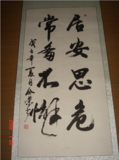 居安思危
常备不懈